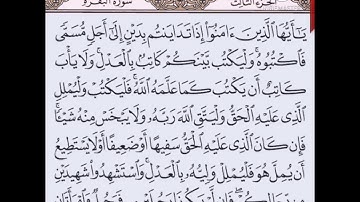 الجزء الثالث سورة البقرة
يَٰٓأَيُّهَا ٱلَّذِينَ ءَامَنُوٓا۟ إِذَا تَدَايَنتُم بِدَيْنٍ إِلَىٰٓ أَجَلٍ مُّسَمًّى
فَٱكْتُبُوهُ ۚ وَلْيَكْتُب بَّيْنَكُمْ كَاتِبٌۢ بِٱلْعَدْلِ ۚ وَلَا يَأْبَ
كَاتِبٌ أَن يَكْتُبَ كَمَا عَلَّمَهُ ٱللَّهُ ۚ فَلْيَكْتُبْ وَلْيُمْلِلِ
ٱلَّذِى عَلَيْهِ ٱلْحَقُّ وَلْيَتَّقِ ٱللَّهَ رَبَّهُۥ وَلَا يَبْخَسْ مِنْهُ شَيْـًٔا ۚ
فَإِن كَانَ ٱلَّذِى عَلَيْهِ ٱلْحَقُّ سَفِيهًا أَوْ ضَعِيفًا أَوْ لَا يَسْتَطِيعُ
أَن يُمِلَّ هُوَ فَلْيُمْلِلْ وَلِيُّهُۥ بِٱلْعَدْلِ ۚ وَٱسْتَشْهِدُوا۟ شَهِيدَيْنِ